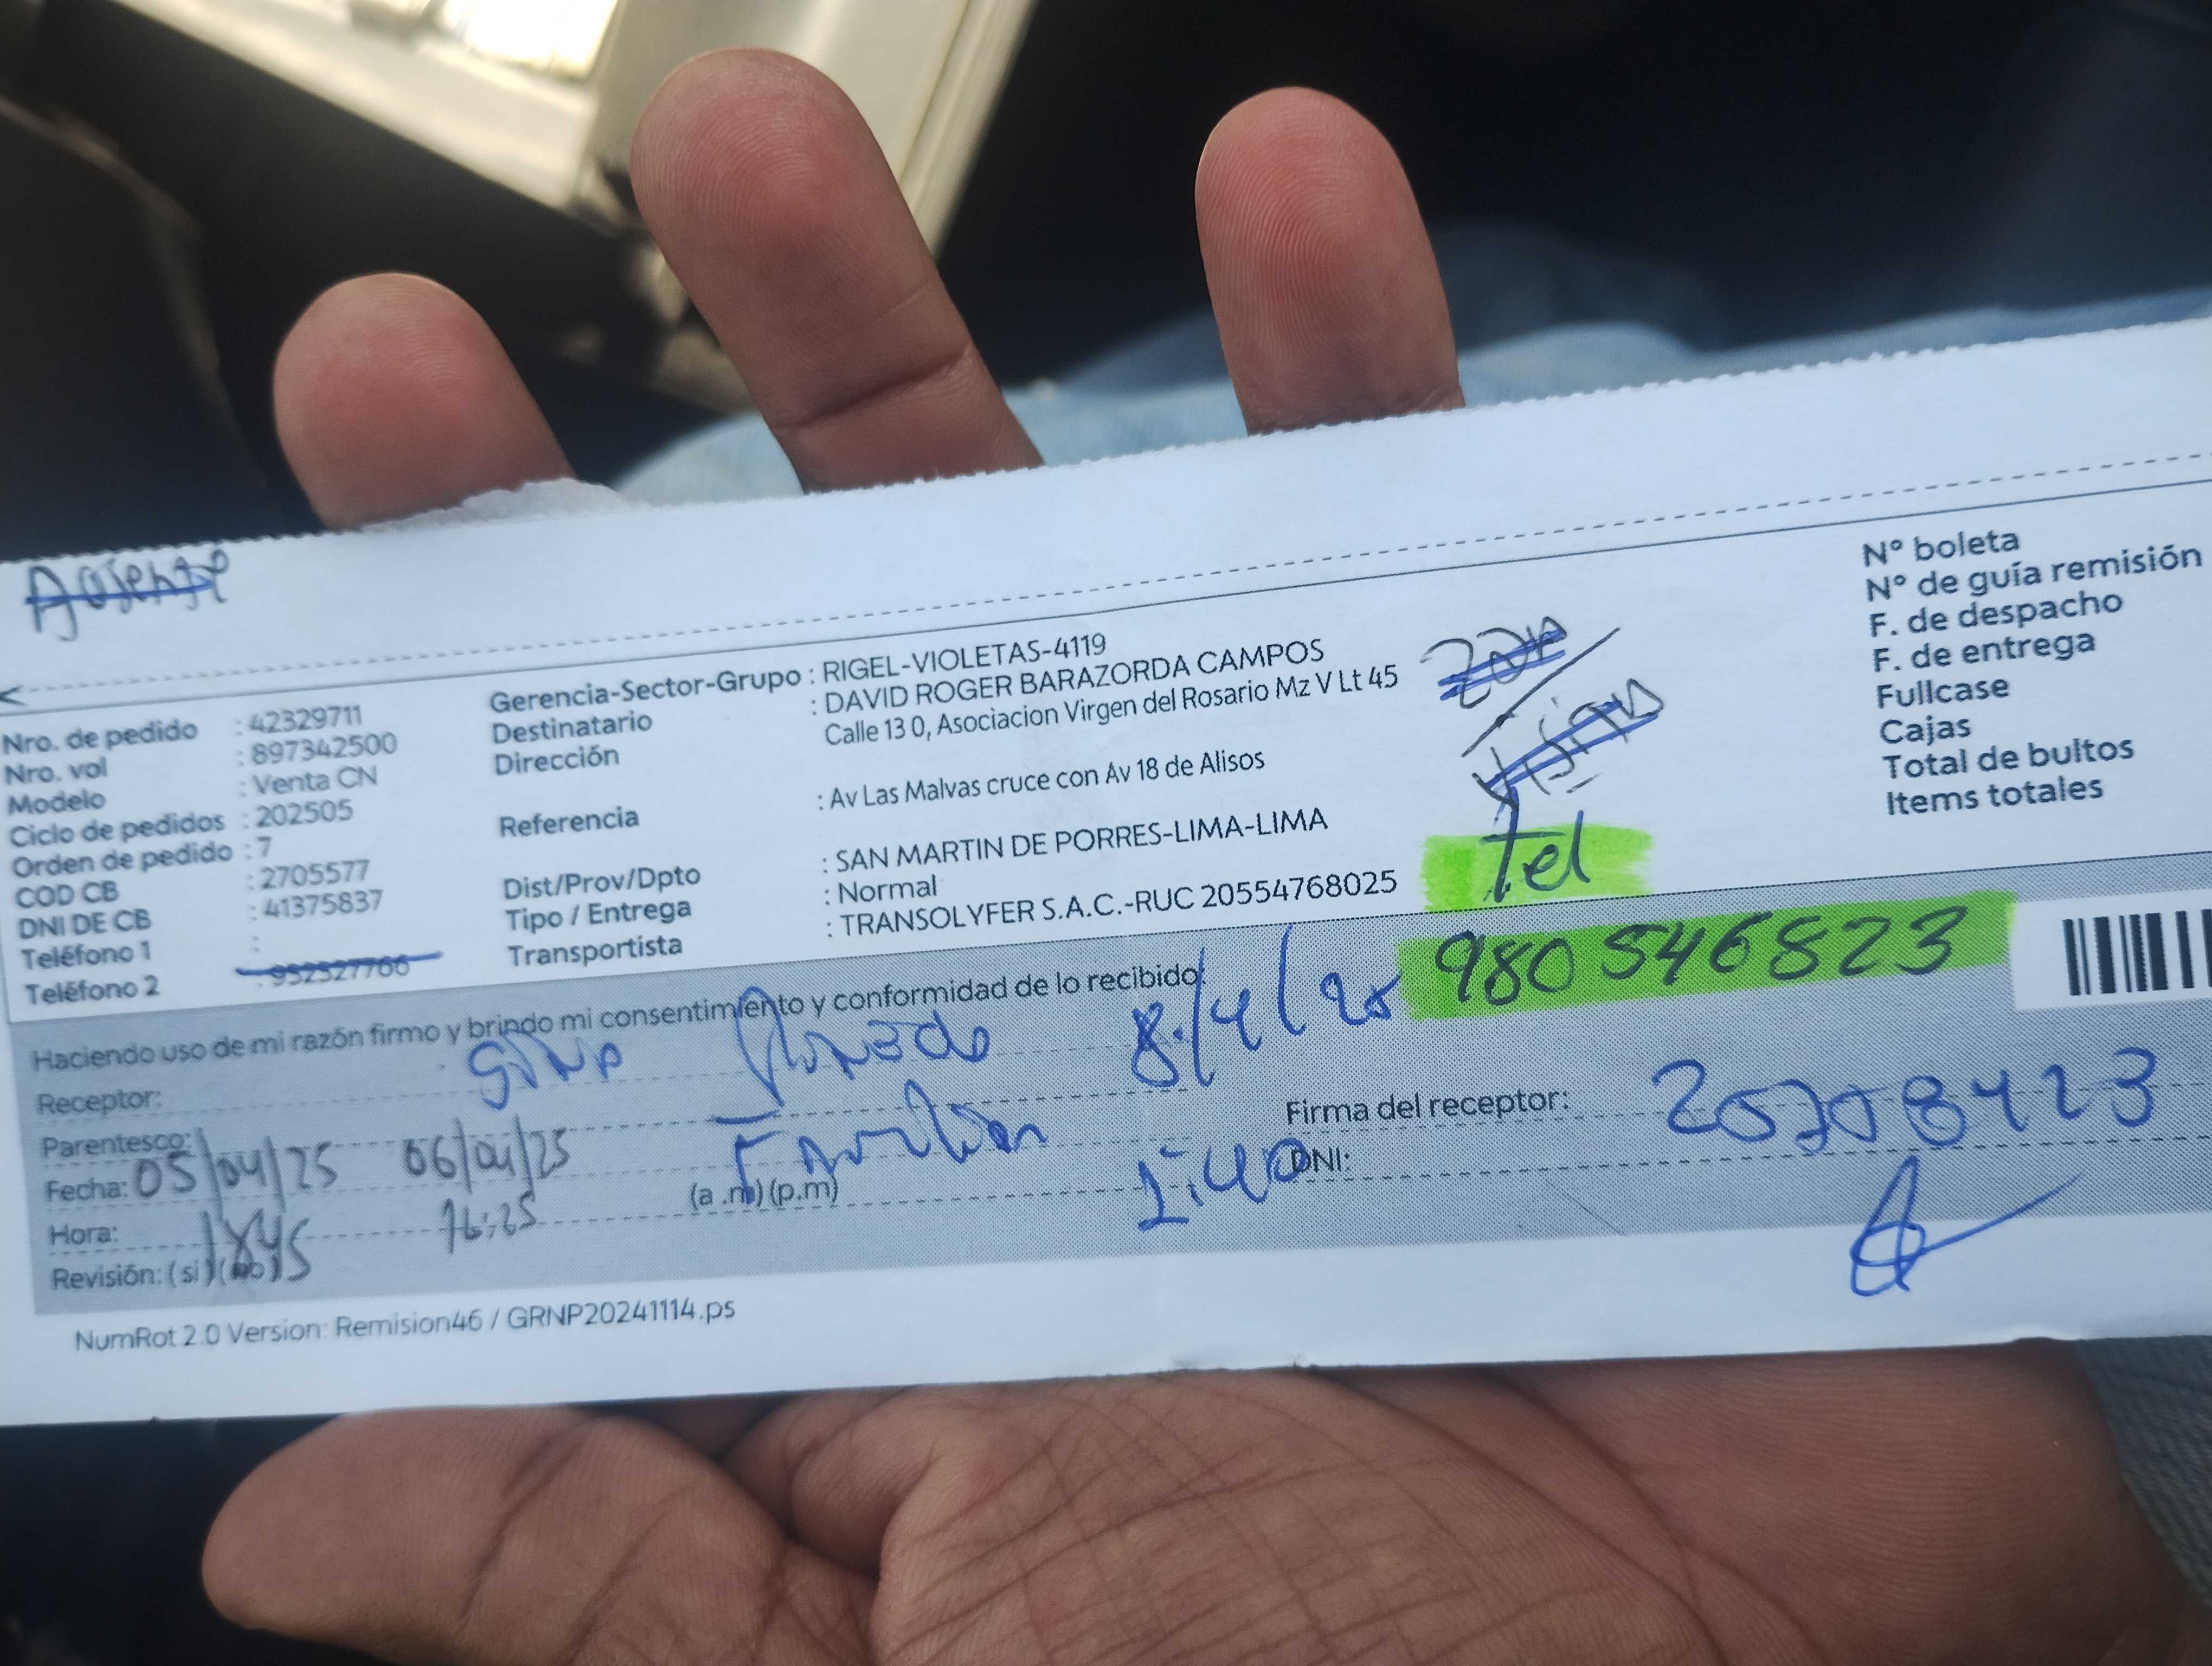 Ausente
Nro. de pedido : 42329711
Nro. vol : 897342500
Modelo : Venta CN
Ciclo de pedidos : 202505
Orden de pedido : 7
COD CB : 2705577
DNI DE CB : 41375837
Teléfono 1 :
Teléfono 2 : 932327766
Gerencia-Sector-Grupo : RIGEL-VIOLETAS-4119
Destinatario : DAVID ROGER BARAZORDA CAMPOS
Dirección : Calle 13 0, Asociacion Virgen del Rosario Mz V Lt 45
Referencia : Av Las Malvas cruce con Av 18 de Alisos
Dist/Prov/Dpto : SAN MARTIN DE PORRES-LIMA-LIMA
Tipo / Entrega : Normal
Transportista : TRANSOLYFER S.A.C.-RUC 20554768025
Tel
980 546823
N° boleta
N° de guía remisión
F. de despacho
F. de entrega
Fullcase
Cajas
Total de bultos
Items totales
Haciendo uso de mi razón firmo y brindo mi consentimiento y conformidad de lo recibido:
Receptor: 8/4/25
Parentesco:
Fecha: 05/04/25 06/04/25
Hora: 1845 16:25 (a .m) (p.m) 1:40
Revisión: (si) (no)
Firma del receptor:
DNI:
NumRot 2.0 Version: Remision46 / GRNP20241114.ps